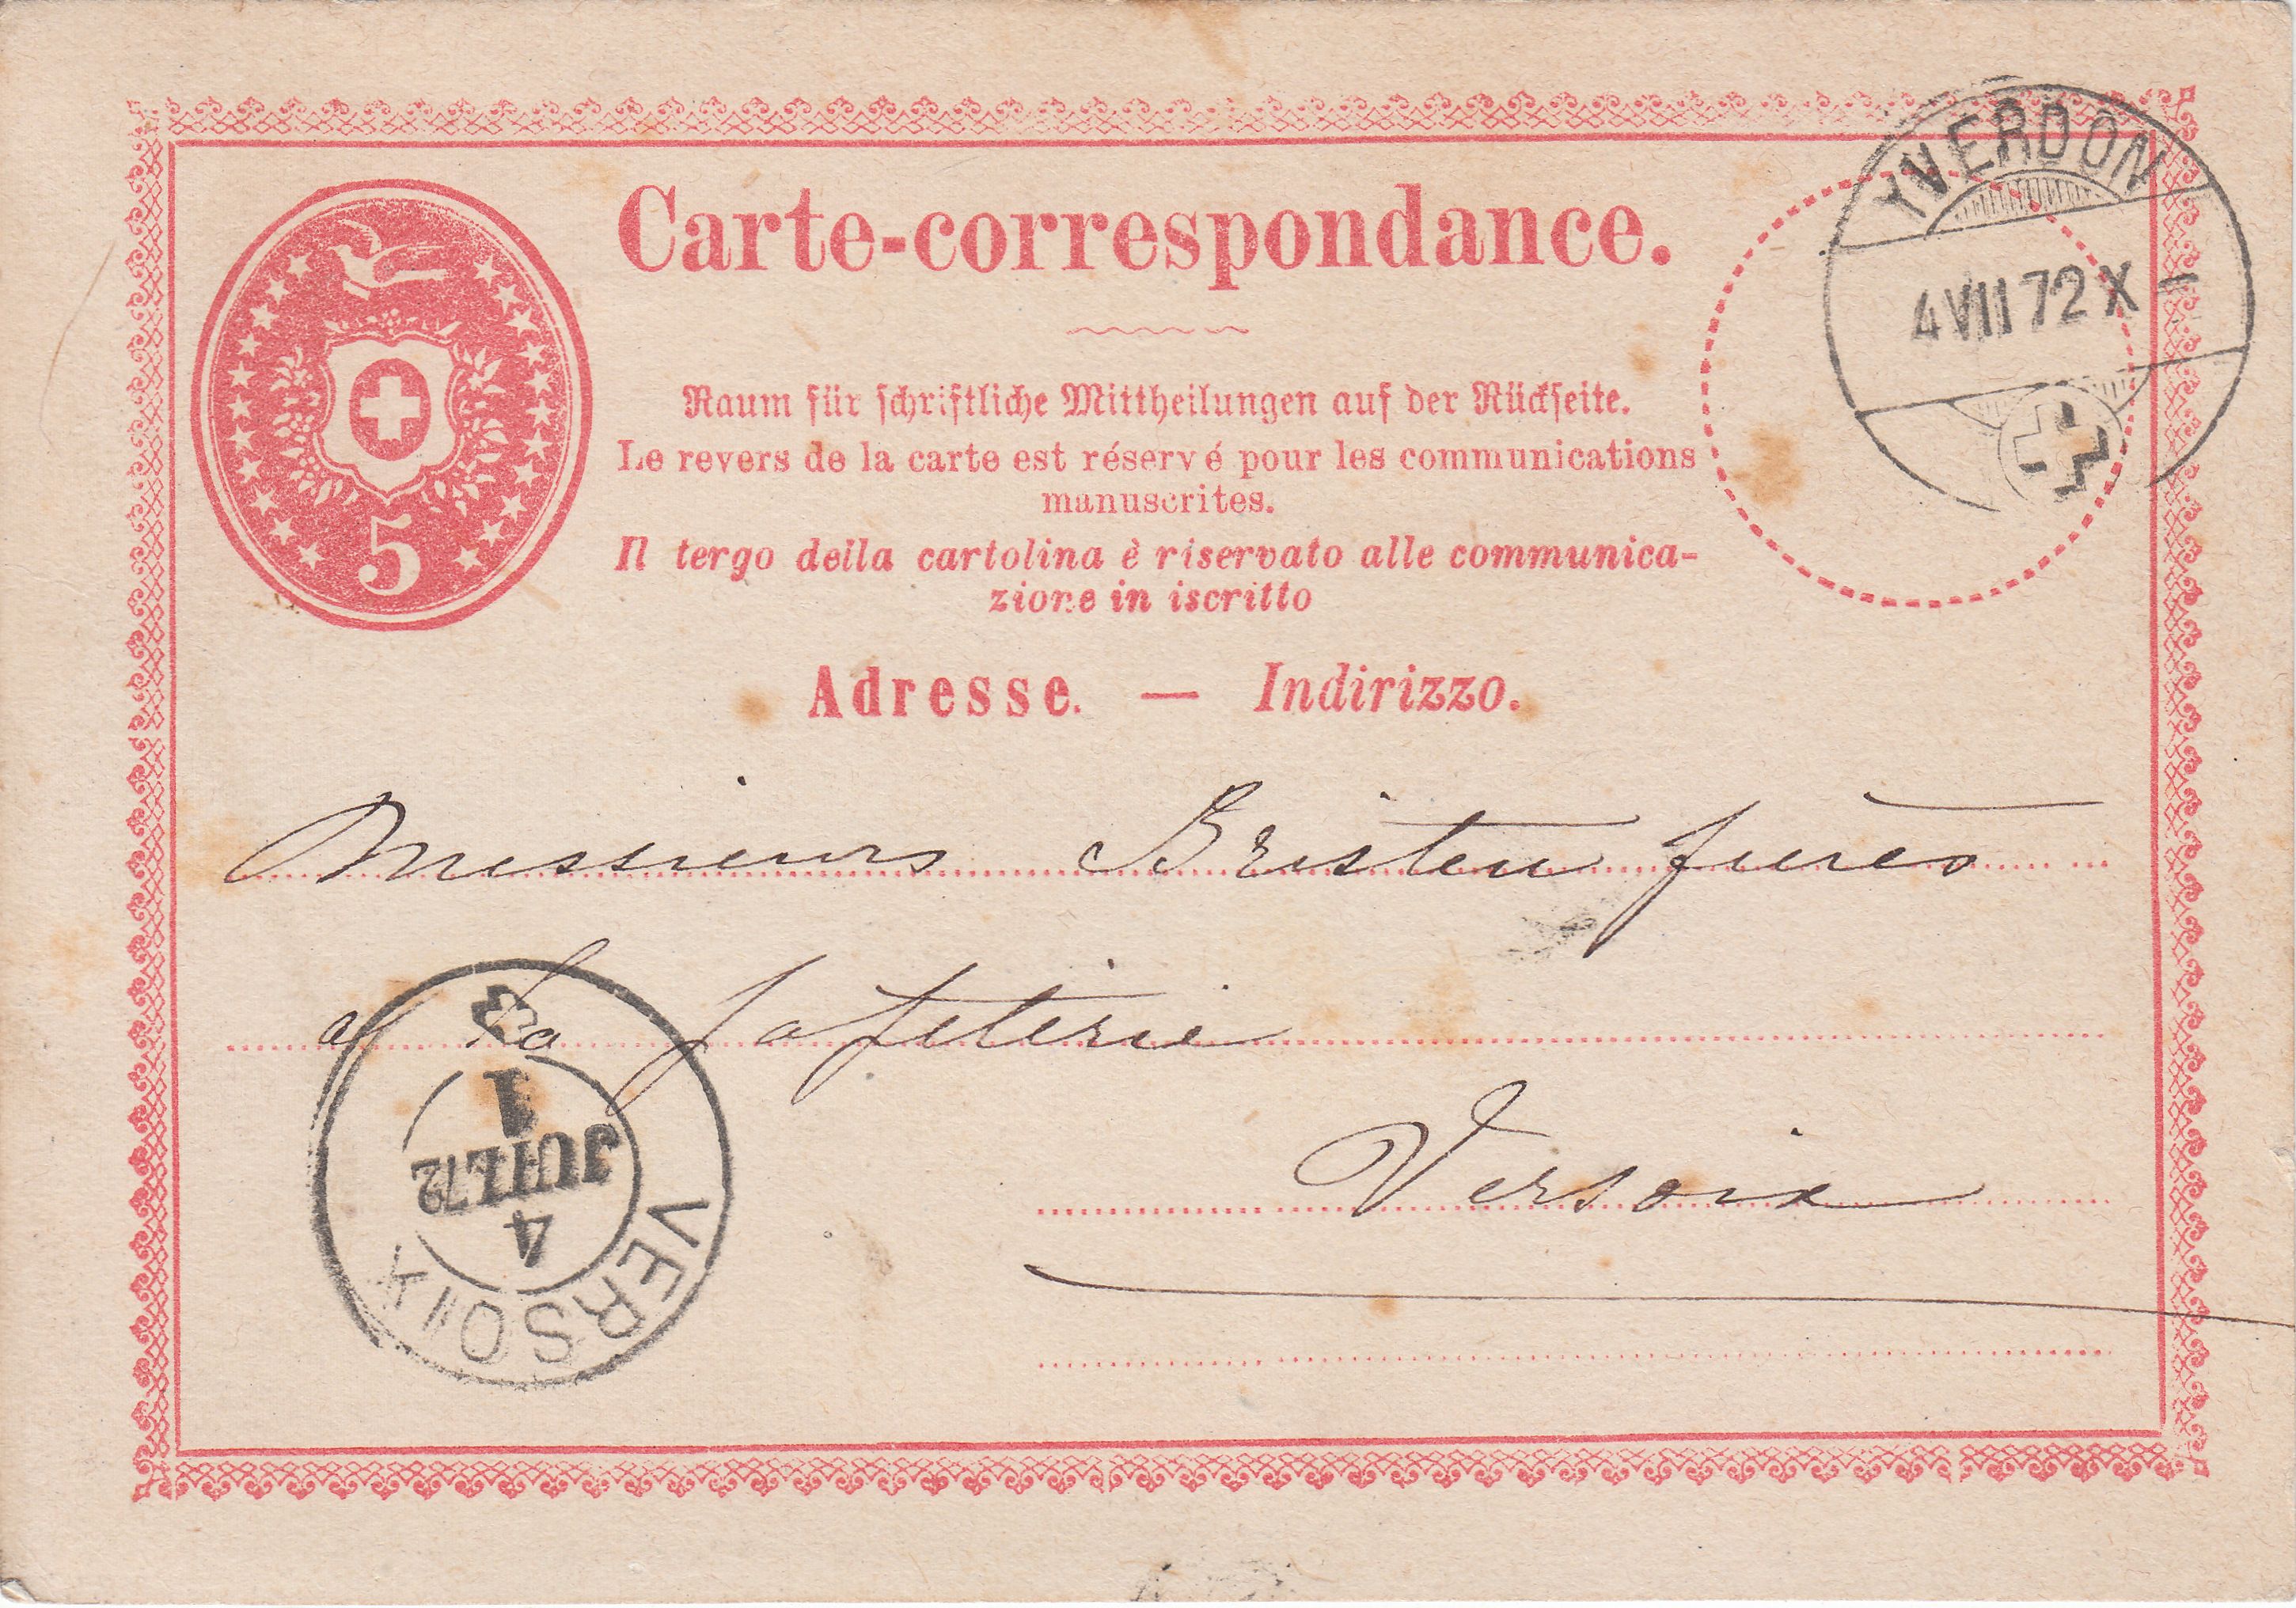 Carte-correspondance.
YVERDON
4 VII 72 X –
Raum für schriftliche Mittheilungen auf der Rückseite.
Le revers de la carte est réservé pour les communications
manuscrites.
Il tergo della cartolina è riservato alle communica-
zione in iscritto
5
Adresse. — Indirizzo.
Messieurs Bristen frères
à la Papeterie
Versoix
VERSOIX
4
JUIL 72
1